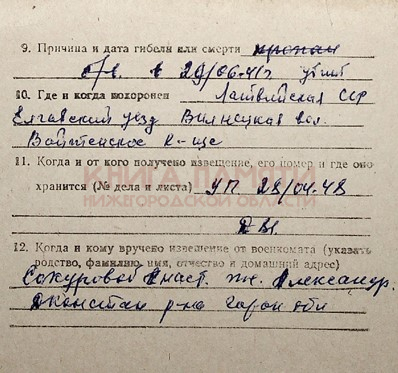 9. Причина и дата гибели или смерти пропал
б/в. в 29/06.41г убит
10. Где и когда похоронен Латвийская ССР
Елгавский уезд Вилнецкая вол.
Войтенское к-ще
11. Когда и от кого получено извещение, его номер и где оно
КНИГА ПАМЯТИ
хранится (№ дела и листа) УП 28/04.48
НИЖЕГОРОДСКОЙ ОБЛАСТИ
12. Когда и кому вручено извещение от военкомата (указать
родство, фамилию, имя, отчество и домашний адрес)
Сокуровой Анаст. Александр.
р-на